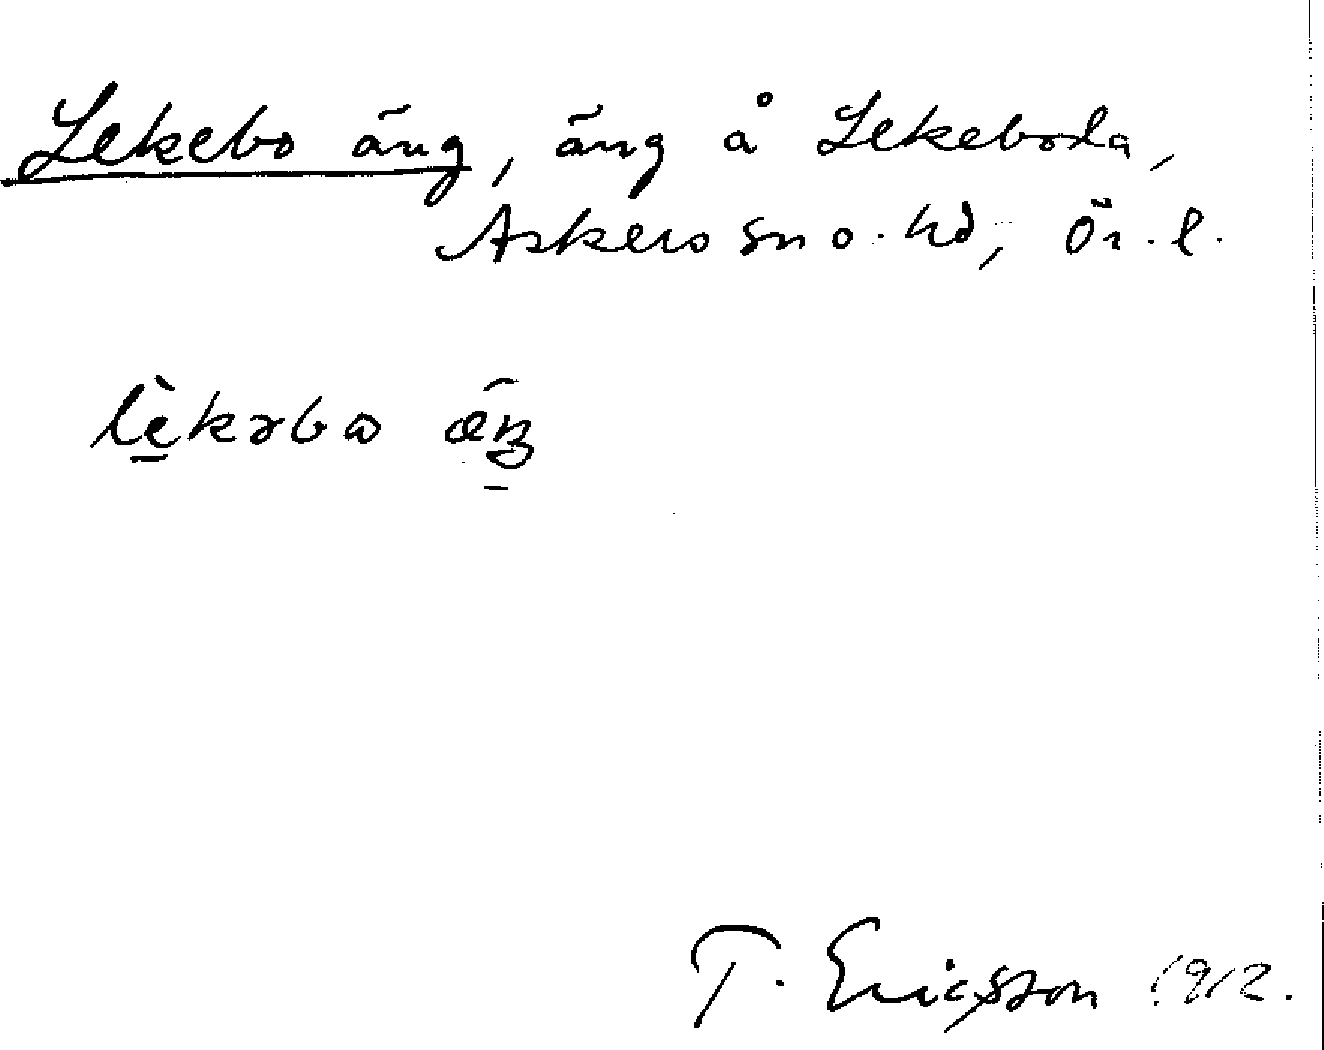 Lekebo äng, äng å Lekeboda,
Askers sn o. hd, Ör. l.
lèkəbω æŋ
T. Ericsson 1912.